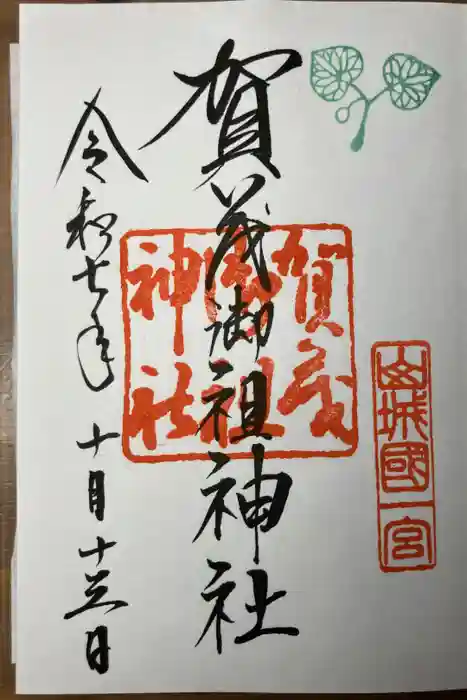 山城國一宮
賀茂御祖神社
賀茂
御祖
神社
令和七年十月十三日